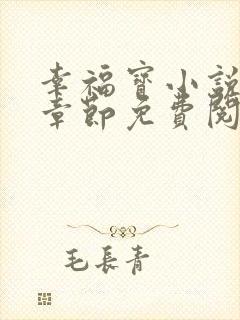 幸福寶小説
章節免費閱
毛長青